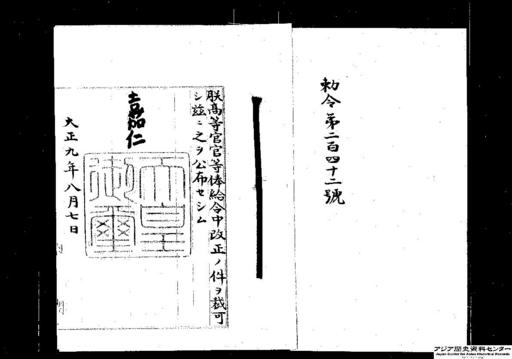 勅令第二百四十二號
朕高等官官等俸給令中改正ノ件ヲ裁可
シ玆ニ之ヲ公布セシム
嘉仁
天皇御璽
大正九年八月七日
アジア歴史資料センター
Japan Center for Asian Historical Records